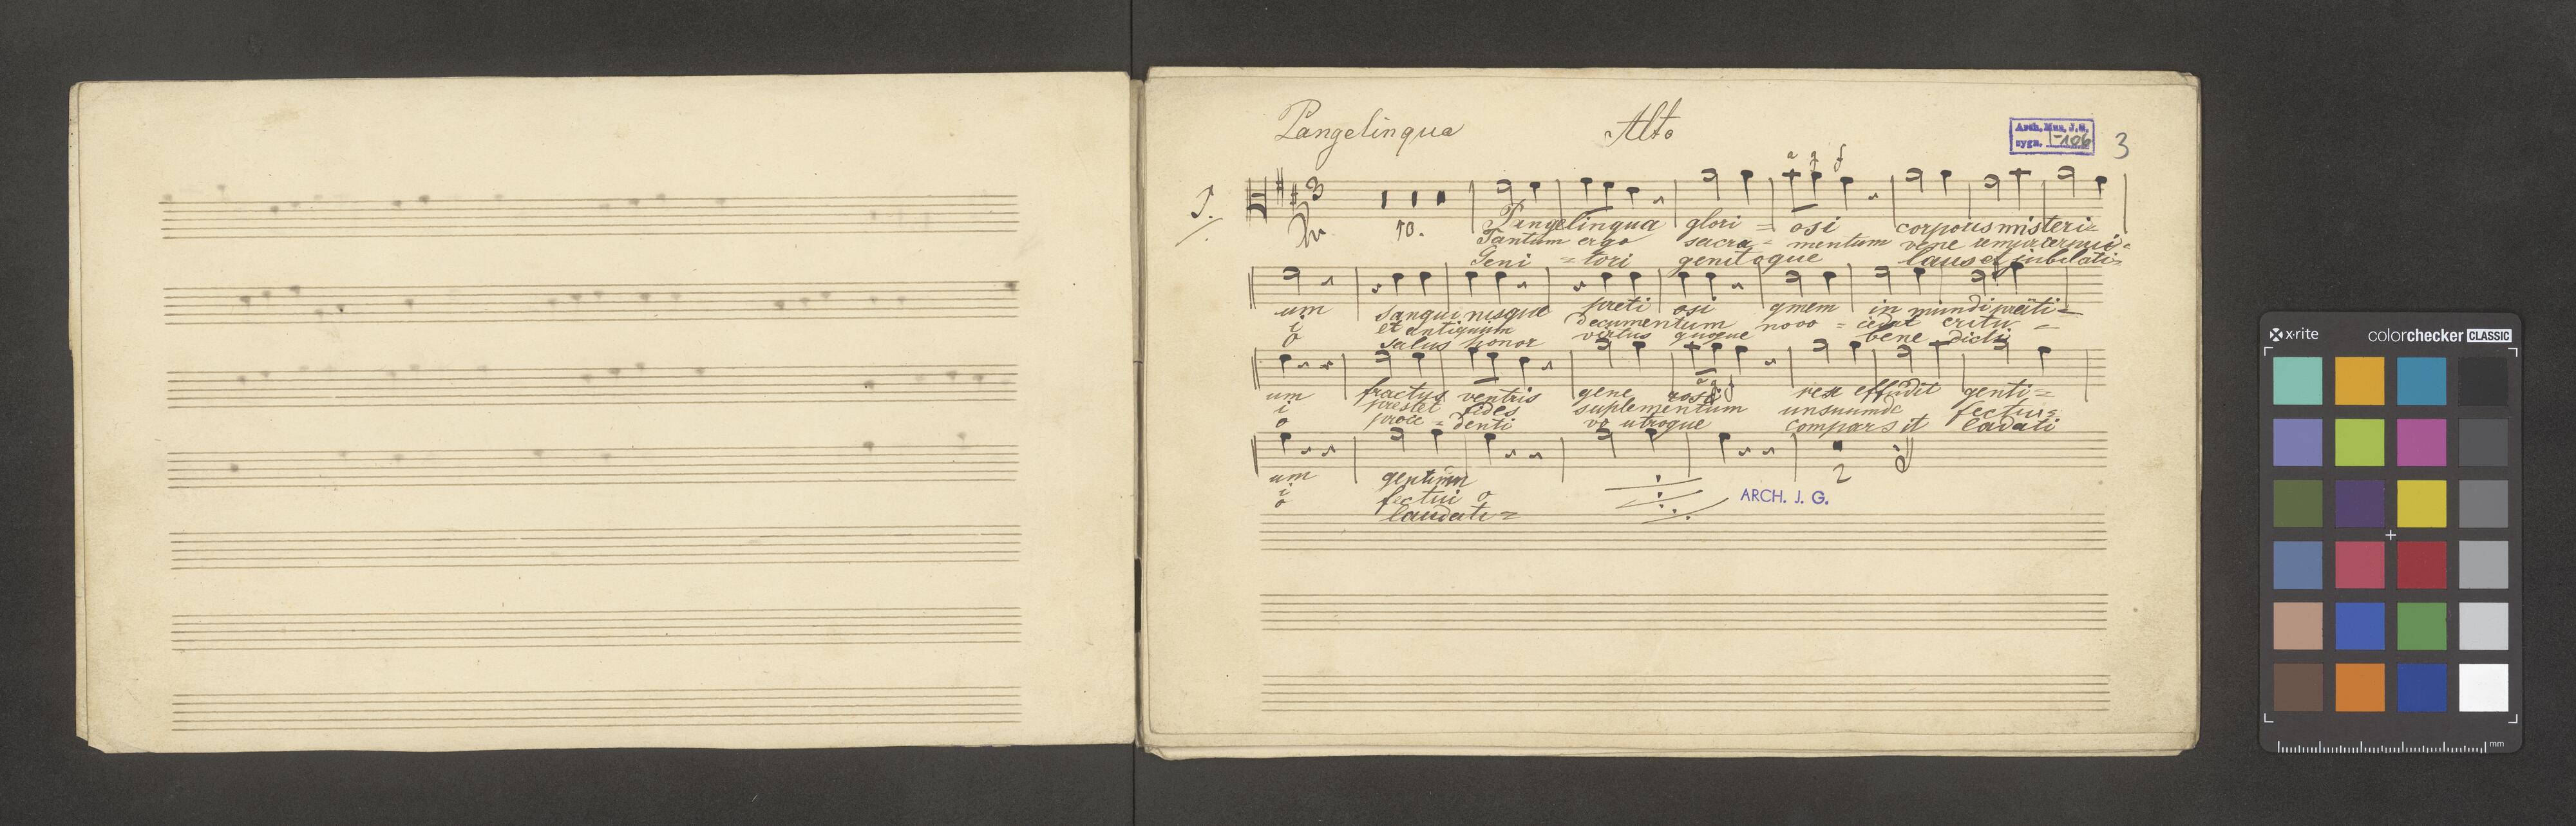 Pangelinqua Alto
Arch. Mus. J.G.
sygn. I-106
3
1. 3 10.
a g f
Pangelinqua glori = osi corporis misteri =
Tantum ergo sacra = mentum
Geni = tori genitoque laus et jubilati =
um sanguinisque preti osi qmem in mundi preiti =
i et antiquum documentum novo = cedat ritu =
o salus honor virtus quoque bene dicti
um fructus ventris gene rosi rex effudit genti =
i prestet fides suplementum fectui =
o proce = denti vo utroque compar sit ladati
um gentium
i fectui o
o laudati =
2
ARCH. J. G.
x-rite colorchecker CLASSIC
mm